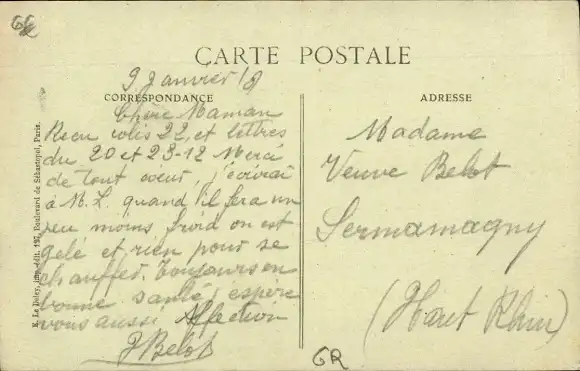 CARTE POSTALE
9 Janvier 18
CORRESPONDANCE
Chère Maman
Recu colis 22 et lettres
du 20 et 23-12 Merci
de tout cœur, j'écrirai
à M. L. quand il fera un
peu moins froid on est
gelé et rien pour se
chauffer. Toujours en
bonne santé, espère
vous aussi Affection
J Belot
ADRESSE
Madame
Veuve Belot
Sermamagny
(Haut Rhin)
GR
E. Le Deley, imp.-édit. 127, Boulevard de Sébastopol, Paris.